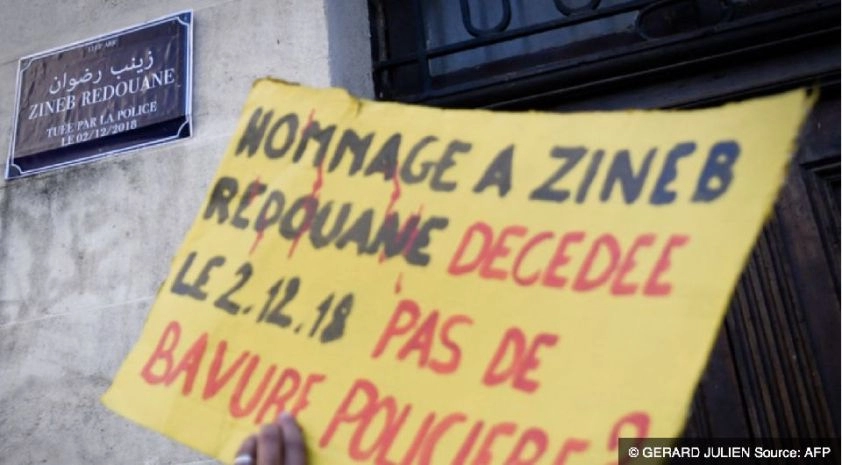 زينب رضوان
ZINEB REDOUANE
TUÉE PAR LA POLICE
LE 02/12/2018
HOMMAGE A ZINEB
REDOUANE DECEDEE
LE 2.12.18 PAS DE
BAVURE POLICIERE ?
© GERARD JULIEN Source: AFP